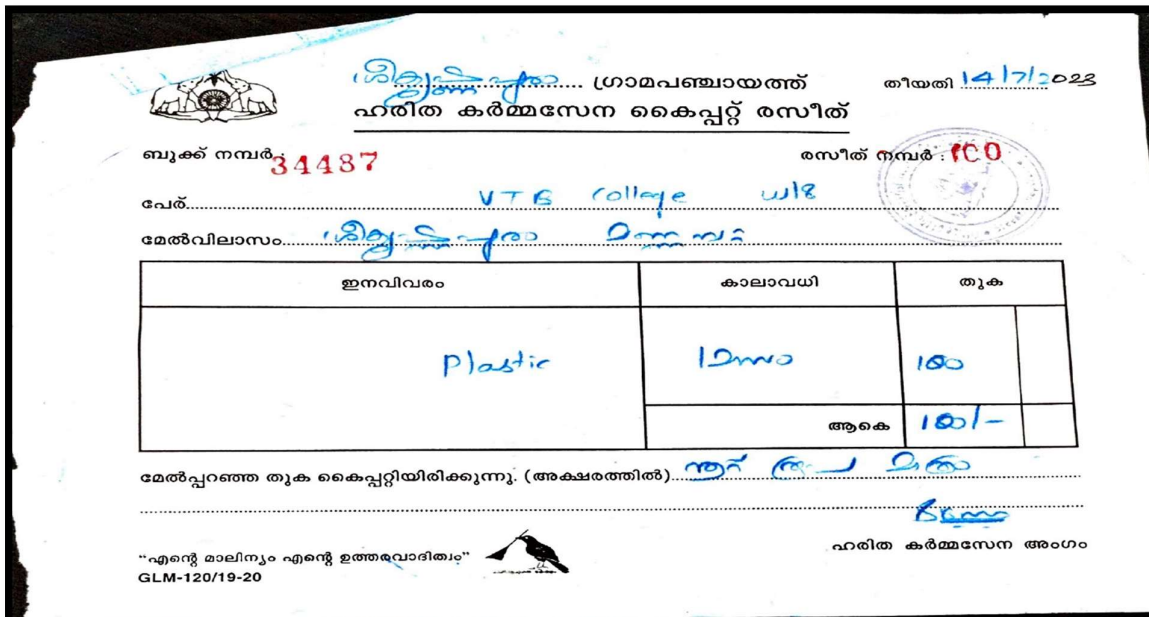 ശ്രീകൃഷ്ണപുരം ഗ്രാമപഞ്ചായത്ത് തീയതി 14/7/2023
ഹരിത കർമ്മസേന കൈപ്പറ്റ് രസീത്
ബുക്ക് നമ്പർ : 34487 രസീത് നമ്പർ : 100
പേര് VTB College W/8
മേൽവിലാസം ശ്രീകൃഷ്ണപുരം മണ്ണമ്പറ്റ
ഇനവിവരം കാലാവധി തുക
Plastic 1മാസം 100
ആകെ 100/-
മേൽപ്പറഞ്ഞ തുക കൈപ്പറ്റിയിരിക്കുന്നു. (അക്ഷരത്തിൽ) നൂറ് രൂപ മാത്രം
ഹരിത കർമ്മസേന അംഗം
"എന്റെ മാലിന്യം എന്റെ ഉത്തരവാദിത്വം"
GLM-120/19-20